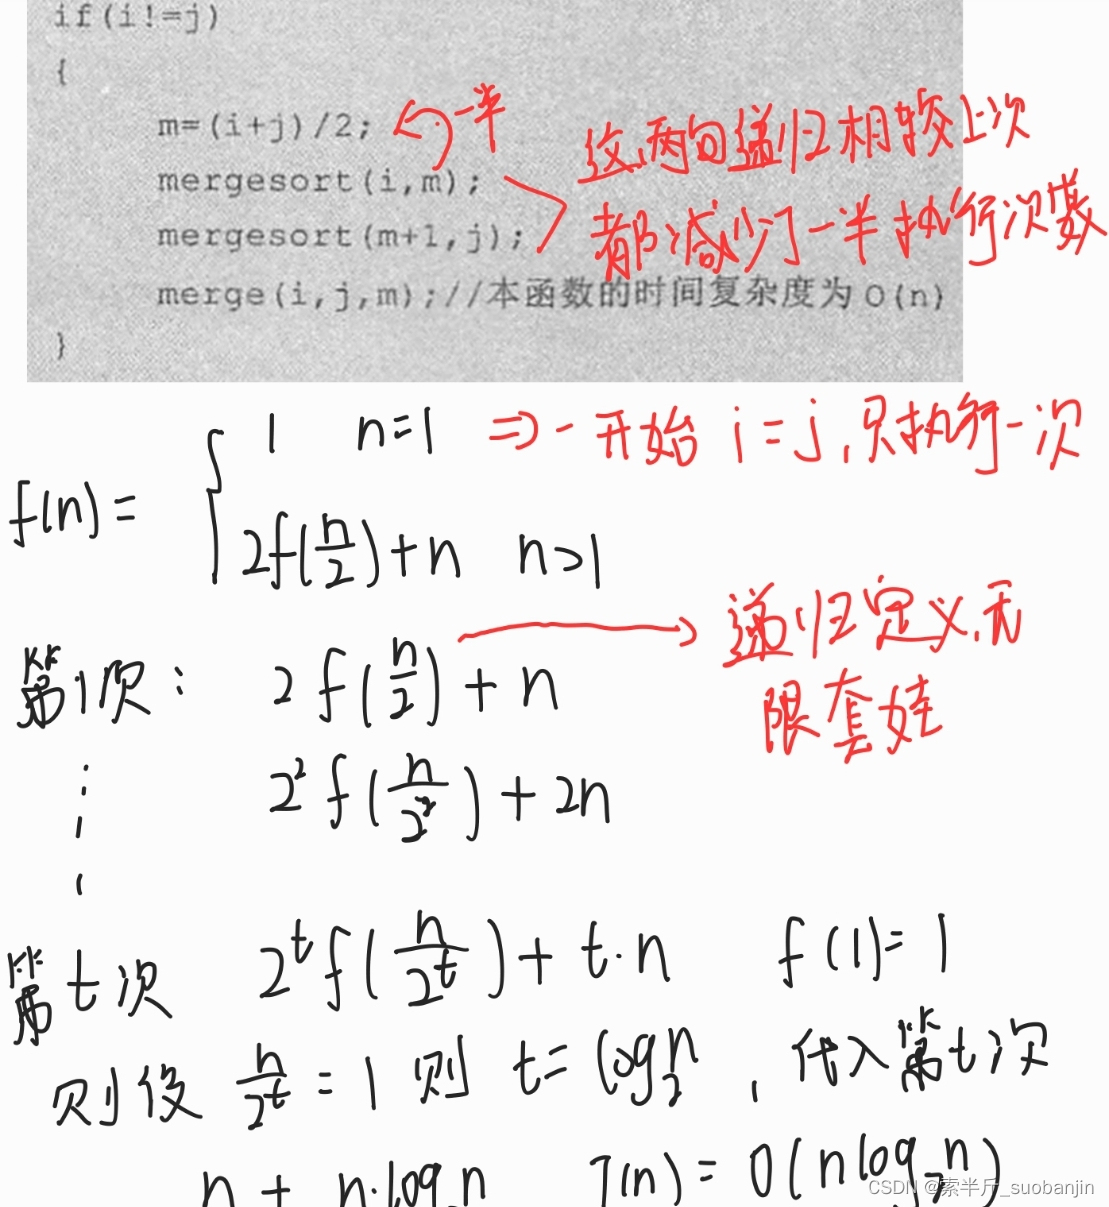 if(i!=j)
{
m=(i+j)/2; 一半
mergesort(i,m); 这两句递归相较上次
mergesort(m+1,j); 都减少了一半执行次数
merge(i,j,m);//本函数的时间复杂度为O(n)
}
f(n)= { 1 n=1 ⇒ 一开始 i=j,只执行一次
2f(n/2)+n n>1
第1次: 2f(n/2)+n → 递归定义,无
限套娃
2²f(n/2²)+2n
第t次 2^t f(n/2^t)+t·n f(1)=1
则设 n/2^t=1 则 t=log₂n , 代入第t次
n+n·log₂n T(n)=O(nlog₂n)
CSDN @索半斤_suobanjin